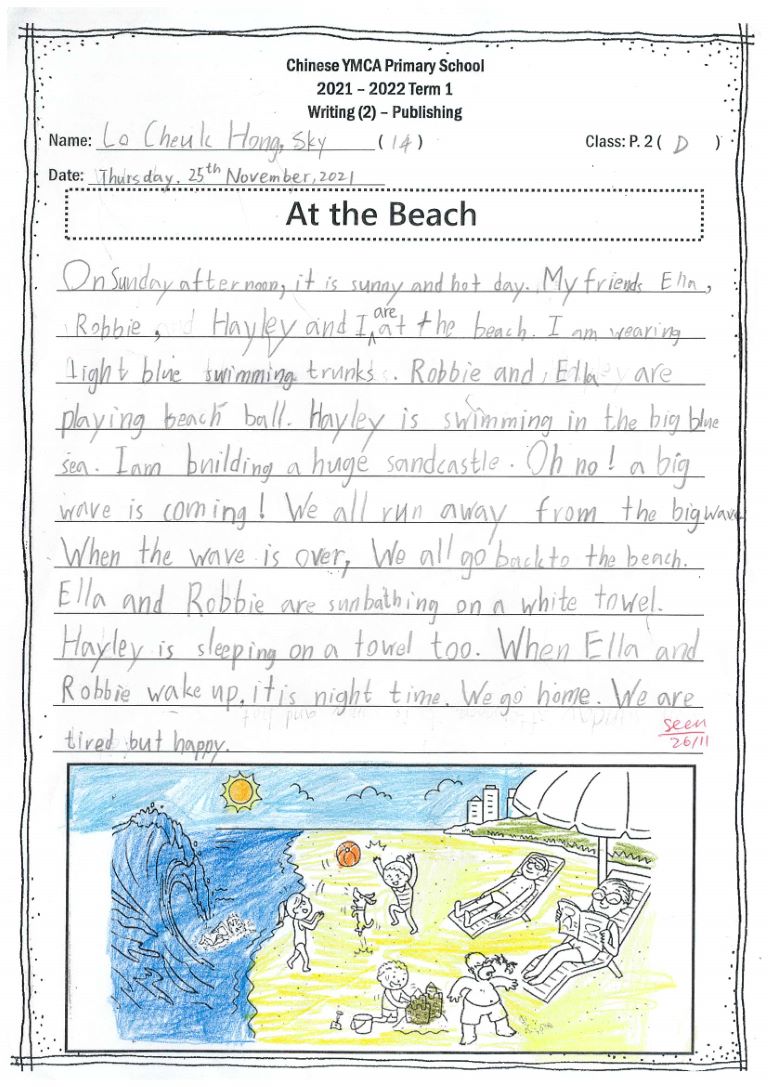 Chinese YMCA Primary School
2021 – 2022 Term 1
Writing (2) – Publishing
Name: Lo Cheuk Hong, Sky (14) Class: P. 2 ( D )
Date: Thursday, 25th November, 2021
At the Beach
On Sunday afternoon, it is sunny and hot day. My friends Ella,
Robbie, Hayley and I are at the beach. I am wearing
light blue swimming trunks. Robbie and Ella are
playing beach ball. Hayley is swimming in the big blue
sea. I am building a huge sandcastle. Oh no! a big
wave is coming! We all run away from the big wave.
When the wave is over, We all go back to the beach.
Ella and Robbie are sunbathing on a white towel.
Hayley is sleeping on a towel too. When Ella and
Robbie wake up, it is night time. We go home. We are
tired but happy.
seen
26/11